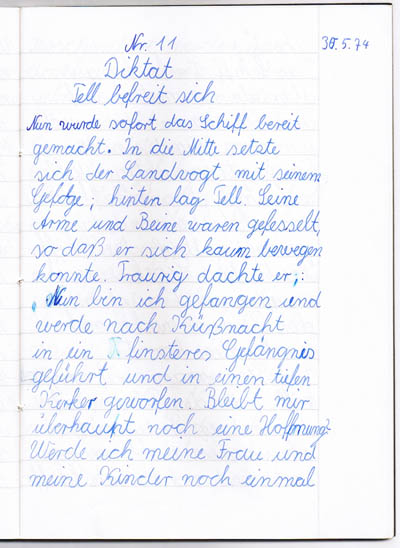 Nr. 11 30.5.74
Diktat
Tell befreit sich
Nun wurde sofort das Schiff bereit
gemacht. In die Mitte setzte
sich der Landvogt mit seinem
Gefolge; hinten lag Tell. Seine
Arme und Beine waren gefesselt,
so daß er sich kaum bewegen
konnte. Traurig dachte er:
"Nun bin ich gefangen und
werde nach Küßnacht
in ein finsteres Gefängnis
geführt und in einen tiefen
Kerker geworfen. Bleibt mir
überhaupt noch eine Hoffnung?
Werde ich meine Frau und
meine Kinder noch einmal